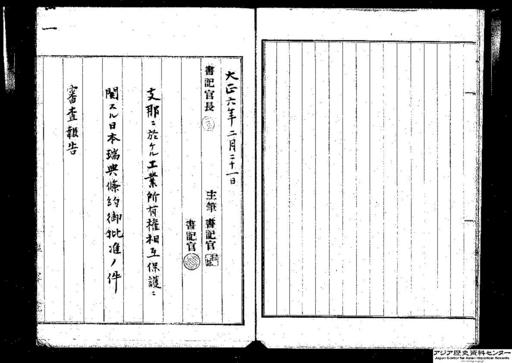 大正六年二月二十一日
書記官長
主筆 書記官
書記官
支那ニ於ケル工業所有權相互保護ニ
関スル日本瑞典條約御批准ノ件
審査報告
アジア歴史資料センター
Japan Center for Asian Historical Records